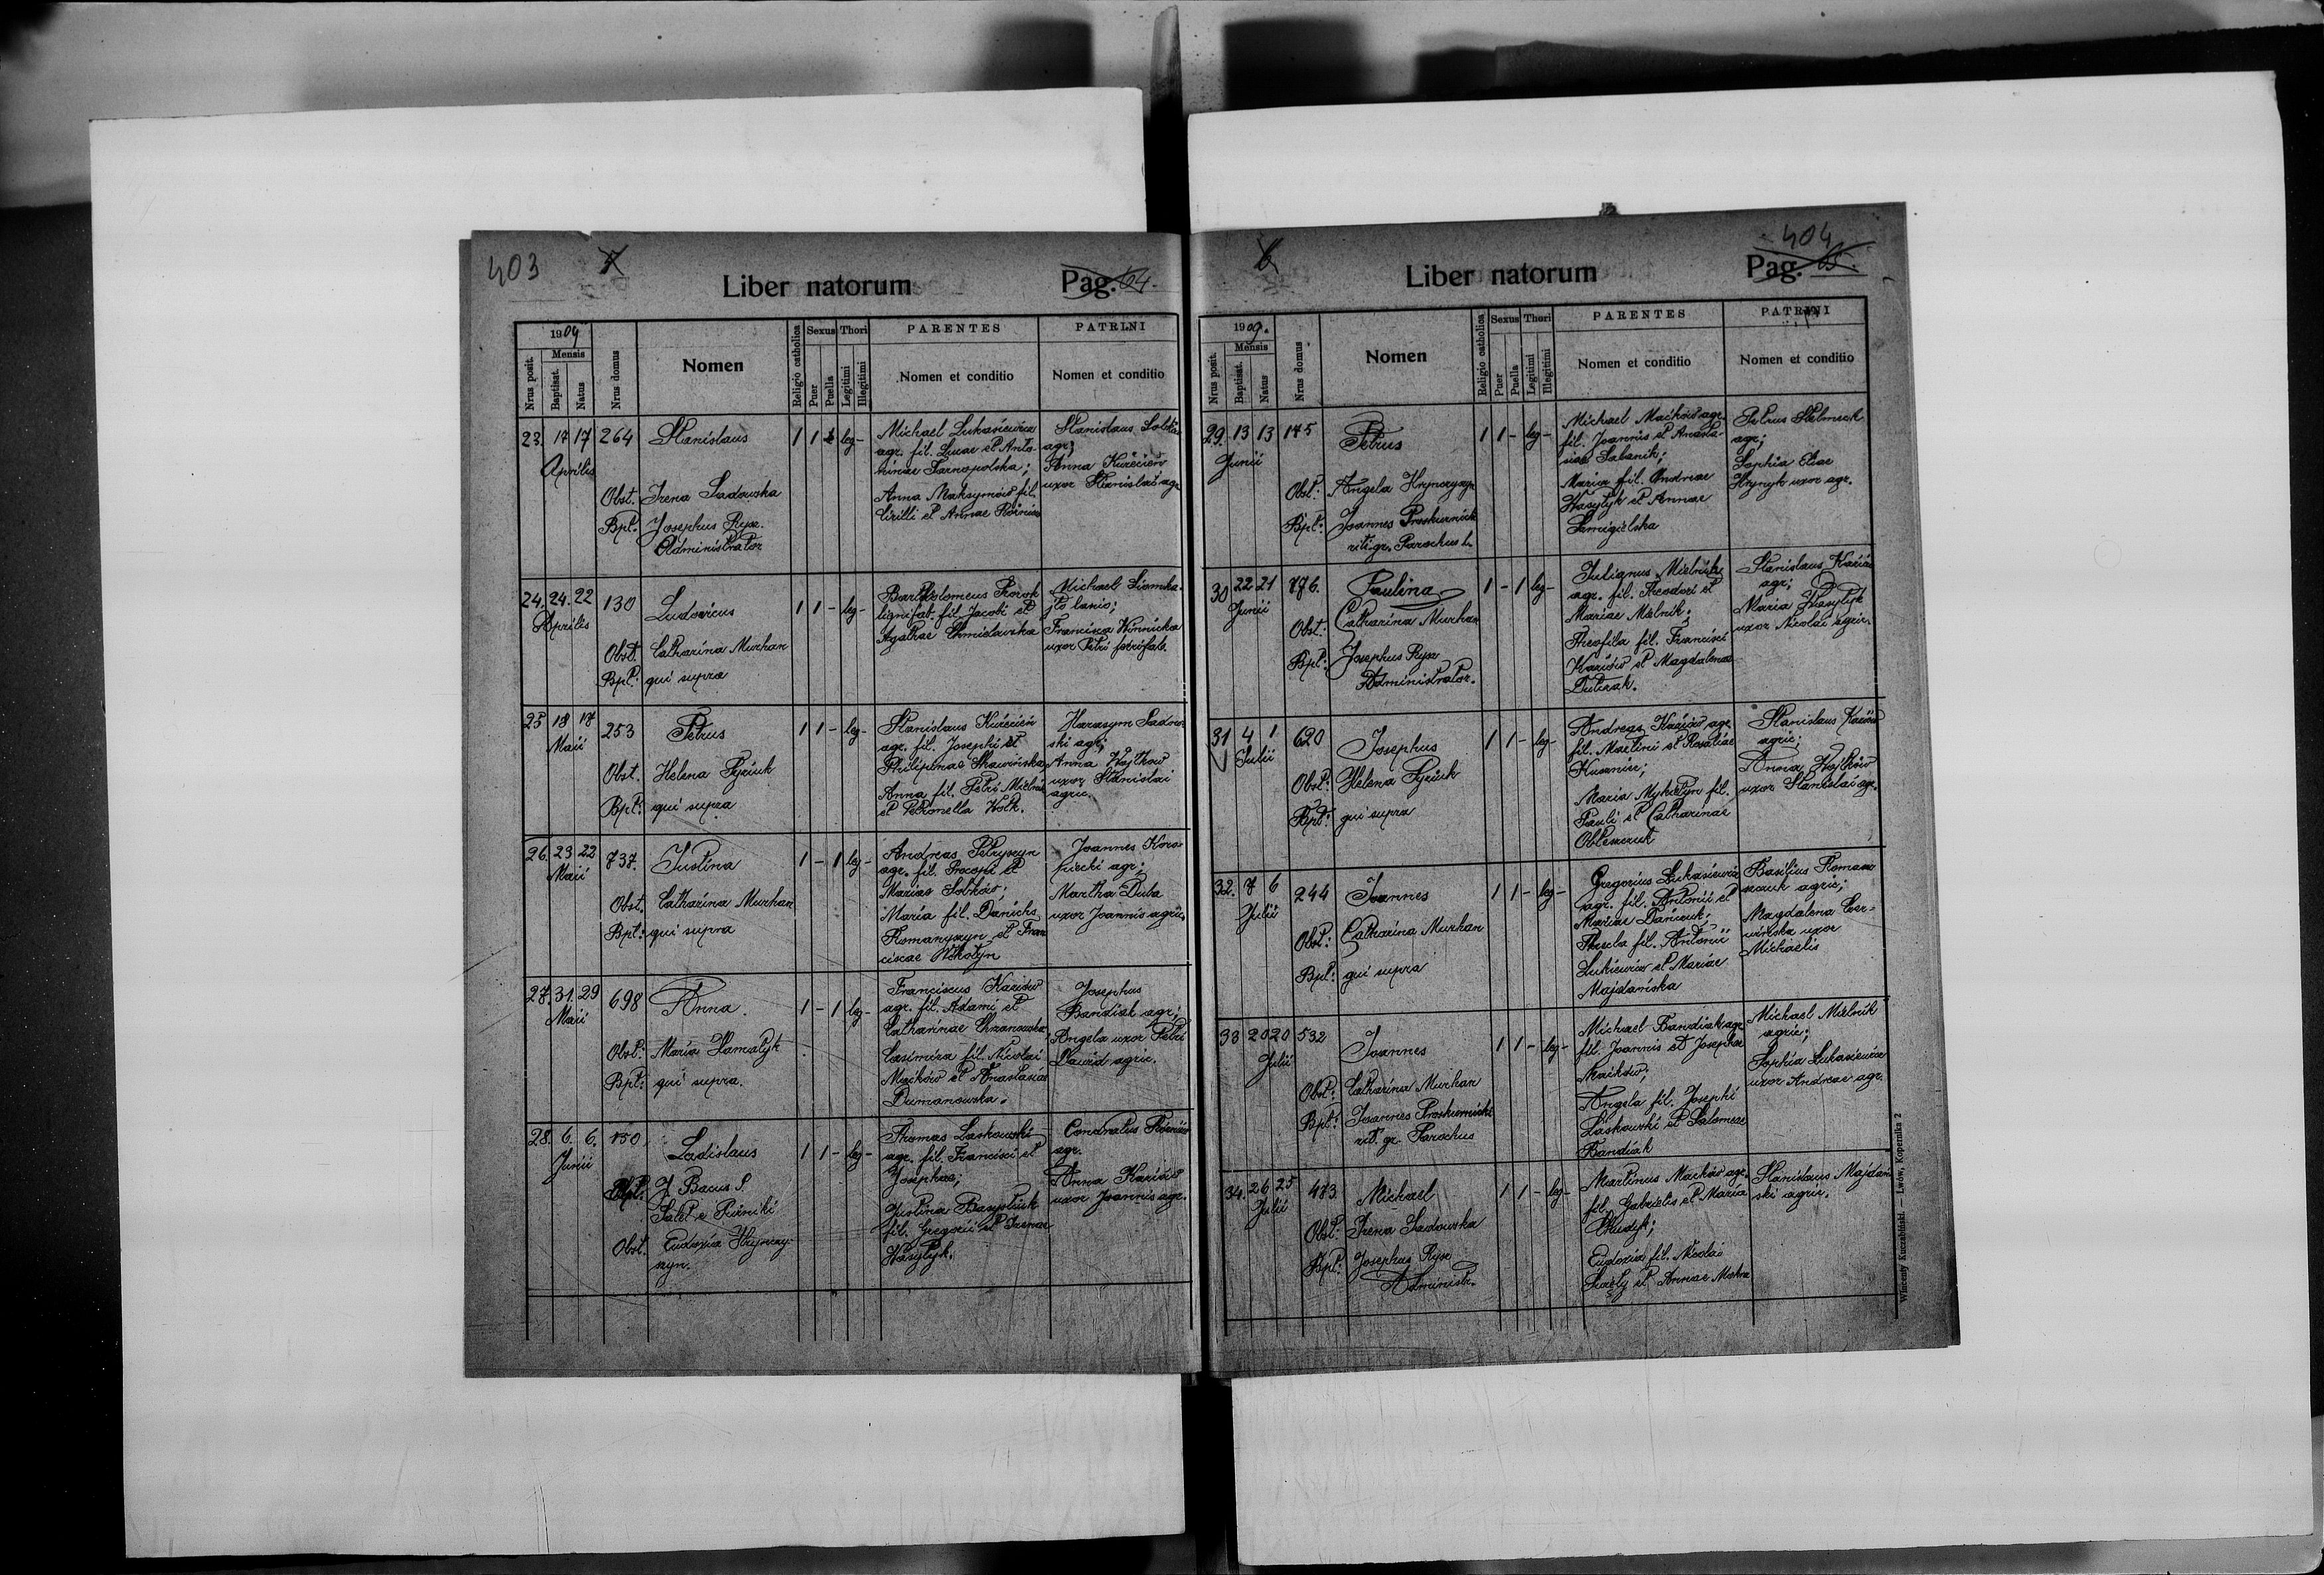 403
Liber natorum
Pag. 64.
1909
Mensis
Nrus posit.
Baptisat.
Natus
Nrus domus
Nomen
Religio catholica
Sexus
Puer
Puella
Thori
Legitimi
Illegitimi
PARENTES
Nomen et conditio
PATRINI
Nomen et conditio
23. 17 17 264 Stanislaus 1 1 - leg -
Aprilis
Obst. Irena Sadowska
Bpt. Josephus Rysz.
Administrator
Michael Lukasiewicz
agr. fil. Lucae et Anto-
ninae Tarnopolska;
Anna Maksymów fil.
Cirilli et Annae
Stanislaus
agr;
Anna Kurecień
uxor Stanislai agr.
24. 24. 22 130 Ludovicus 1 1 - leg -
Aprilis
Obst. Catharina Murhan
Bpt. qui supra
Bartholomeus
lignifab. fil. Jacobi et
Agathae
Michael
lanio;
Francisca
uxor Petri
25 18 17 253 Petrus 1 1 - leg -
Maii
Obst. Helena Pyziuk
Bpt. qui supra
Stanislaus Kurecień
agr. fil. Josephi et
Philipinae
Anna fil. Petri Mielnik
et Petronella Wolk.
Harasym Sadow-
ski agr;
Anna Wojtkow
uxor Stanislai
agric.
26. 23 22 737. Justina 1 - 1 leg -
Maii
Obst. Catharina Murhan
Bpt: qui supra
Andreas Petryszyn
agr. fil. Procopii et
Mariae Sobków;
Maria fil.
Romanyszyn et Fran
ciscae
Joannes
agr;
Martha Duba
uxor Joannis agric.
27. 31. 29 698 Anna. 1 - 1 leg -
Maii
Obst: Maria Hamalyk
Bpt: qui supra.
Franciscus Kariów
agr. fil. Adami et
Catharinae Chzanowska
Casimira fil. Nicolai
Maćków et Anastasiae
Dumanowska.
Josephus
Bandiak agr;
Angela uxor Petri
Dawid agric.
28. 6. 6. 150 Ladislaus 1 1 - leg -
Junii
Bpt. J Bacus S.
Obst. Eudoxia Hrynczy-
szyn.
Thomas Laskowski
agr. fil. Francisci et
Josephae;
Justina
fil. Gregorii et Irenae
Wasylyk.
Conratus
agr.
Anna Kariów
uxor Joannis agr.
404
Liber natorum
Pag. 65.
1909.
Mensis
Nrus posit.
Baptisat.
Natus
Nrus domus
Nomen
Religio catholica
Sexus
Puer
Puella
Thori
Legitimi
Illegitimi
PARENTES
Nomen et conditio
PATRINI
Nomen et conditio
29. 13 13 145 Petrus 1 1 - leg -
Junii
Obst: Angela
Bpt: Joannes Proskurnicki
rit. gr. Parochus
Michael Maćków agr.
fil. Joannis et Anasta-
siae
Maria fil. Andreae
Wasylyk et Annae
Petrus Stelmach
agr;
Sophia
Hrynyk uxor agr.
30 22 21 776. Paulina 1 - 1 leg -
Junii
Obst: Catharina Murhan
Bpt: Josephus Rysz
Administrator.
Julianus Mielnik
agr. fil. Theodori et
Mariae Mielnik;
Theofila fil. Francisci
Kariów et Magdalenae
Stanislaus Kariów
agr;
Maria Wasylyk
uxor Nicolai agric.
31 4 1 620 Josephus 1 1 - leg -
Julii
Obst: Helena Pyziuk
Bpt: qui supra
Andreas Kariów agr.
fil. Martini et Rosaliae
Maria Mykietyn fil.
Pauli et Catharinae
Stanislaus Kariów
agric;
Anna Wojtków
uxor Stanislai agr.
32. 7 6 244 Joannes 1 1 - leg -
Julii
Obst: Catharina Murhan
Bpt: qui supra
Gregorius Lukasiewicz
agr. fil. Antonii et
Mariae
Thecla fil. Antonii
et Mariae
Majdańska
Basilius Roman
agric;
Magdalena
uxor
Michaelis
33 20 20 532 Joannes 1 1 - leg -
Julii
Obst: Catharina Murhan
Bpt: Joannes Proskurnicki
rit. gr. Parochus
Michael Bandiak agr.
fil. Joannis et Josephae
Maćków;
Angela fil. Josephi
Laskowski et Salomeae
Bandiak
Michael Mielnik
agric;
Sophia Lukasiewicz
uxor Andreae agr.
34. 26 25 473 Michael 1 1 - leg -
Julii
Obst: Irena Sadowska
Bpt: Josephus Rysz
Administr.
Martinus Maćków agr.
fil. Gabrielis et Maria
Eudoxia fil. Nicolai
et Annae
Stanislaus Majdań
ski agric.
Wincenty Kuczabiński. Lwów, Kopernika 2